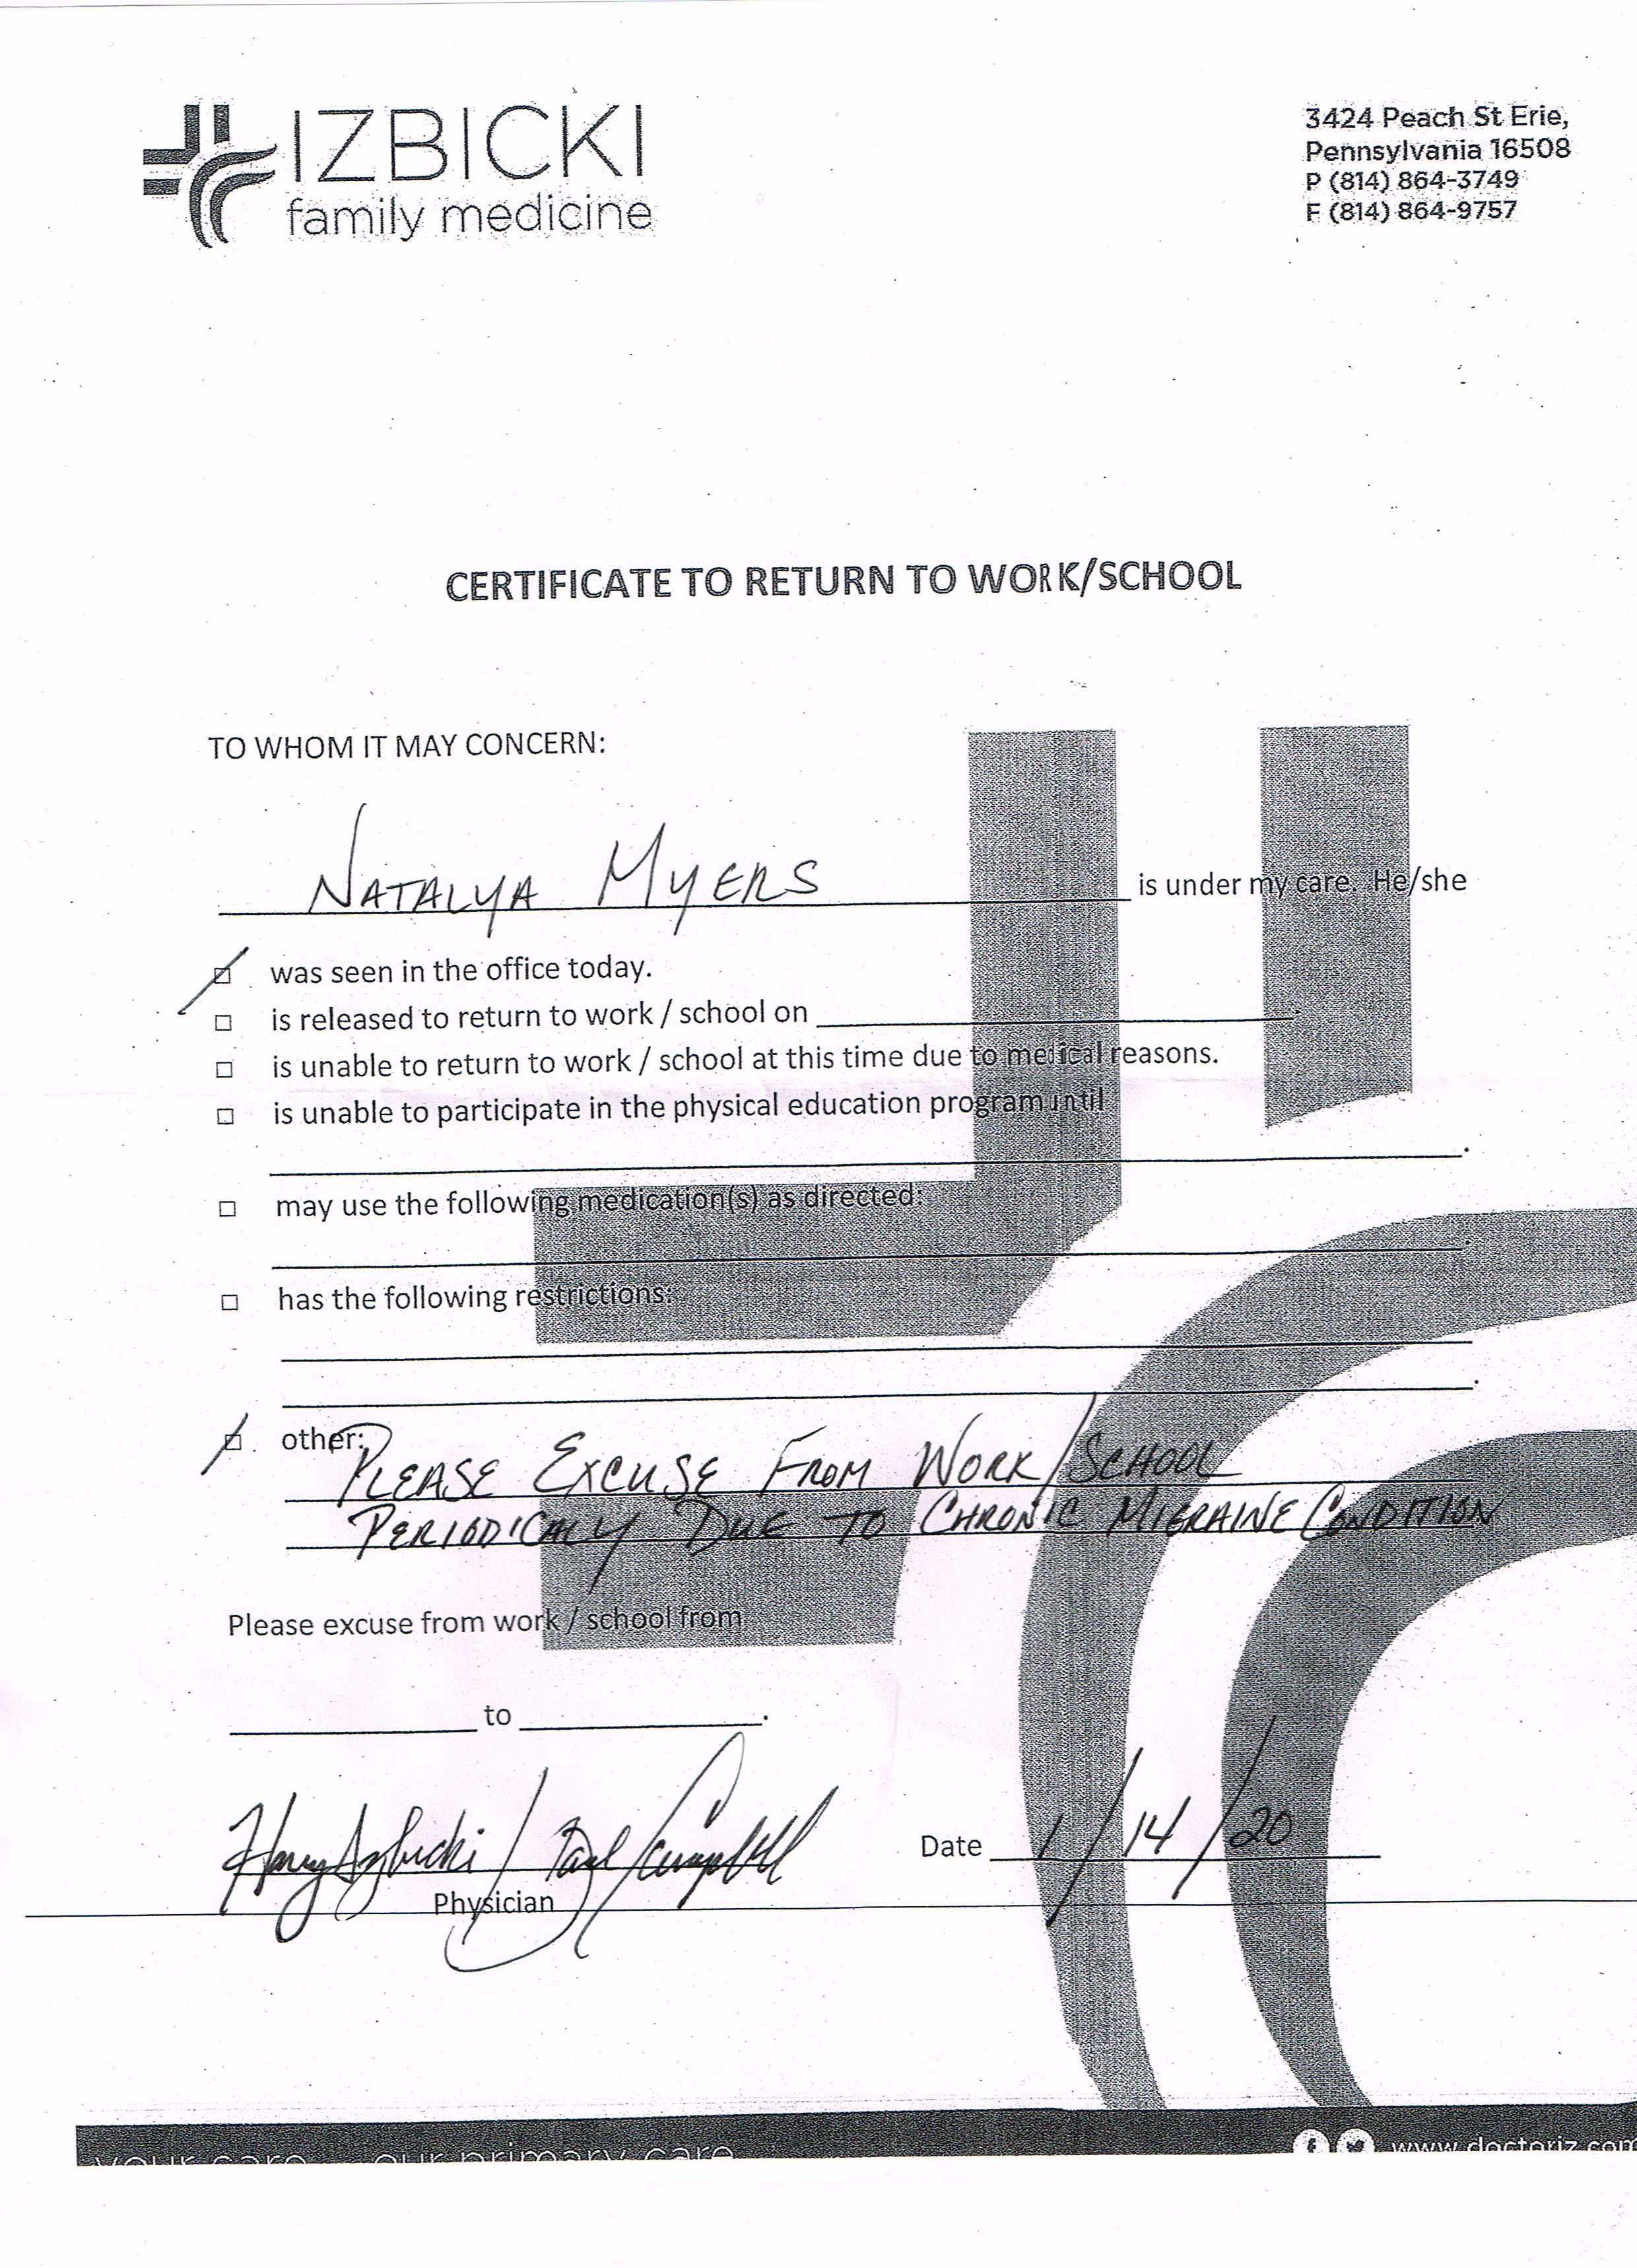 IZBICKI
family medicine
3424 Peach St Erie,
Pennsylvania 16508
P (814) 864-3749
F (814) 864-9757
CERTIFICATE TO RETURN TO WORK/SCHOOL
TO WHOM IT MAY CONCERN:
NATALYA MYERS is under my care. He/she
was seen in the office today.
is released to return to work / school on
is unable to return to work / school at this time due to medical reasons.
is unable to participate in the physical education program until
.
may use the following medication(s) as directed:
.
has the following restrictions:
.
other: PLEASE EXCUSE FROM WORK/SCHOOL
PERIODICALLY DUE TO CHRONIC MIGRAINE CONDITION
Please excuse from work / school from
to .
Harry Izbicki / Paul Campbell
Physician
Date 1/14/20
your care our primary care
www.doctoriz.com